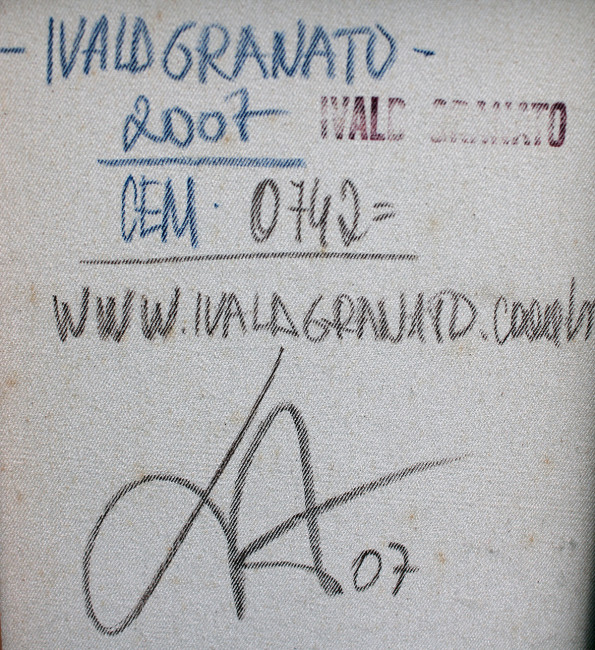 - IVALD GRANATO -
2007 IVALD GRANATO
CEM. 0742=
WWW.IVALDGRANATO.com.br
07